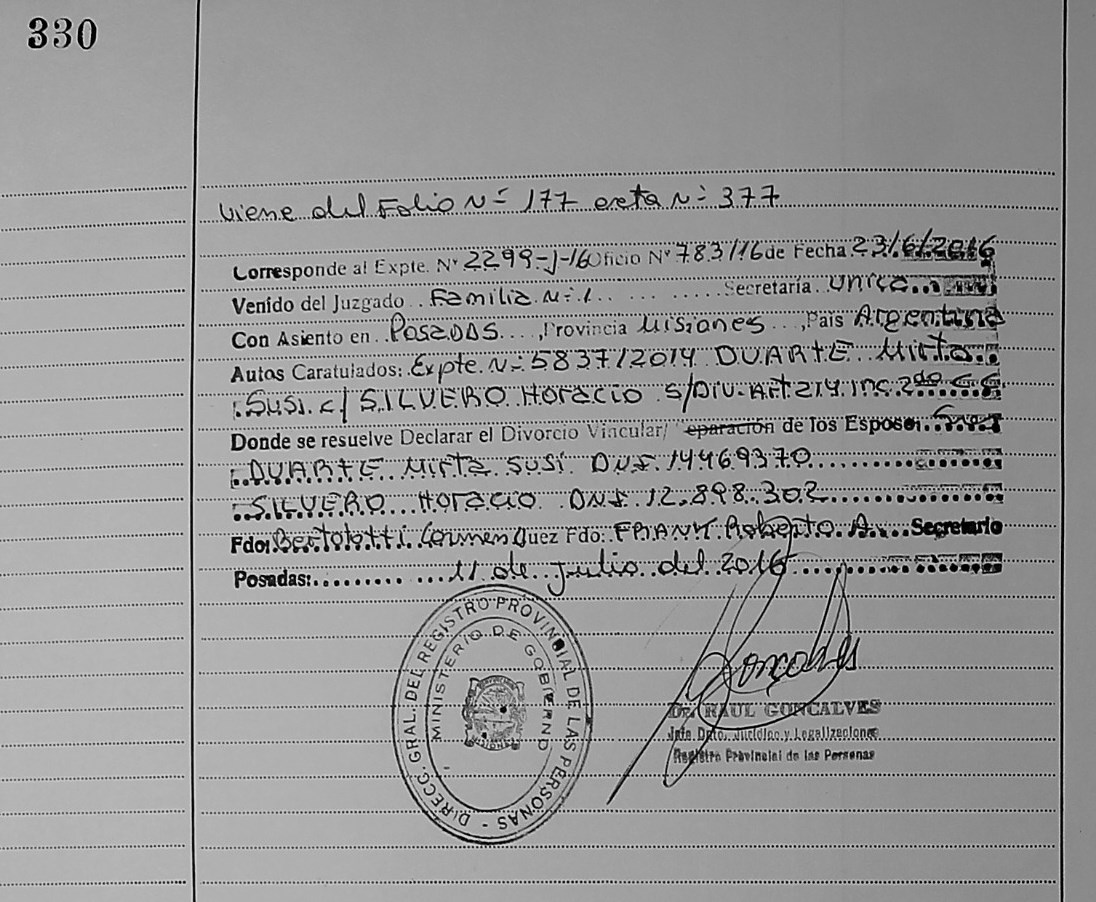 330
Viene del Folio N- 177 acta N- 377
Corresponde al Expte. Nº 2299-J-16 Oficio Nº 783/16 de Fecha 23/6/2016
Venido del Juzgado Familia N- 1 Secretaría Unica
Con Asiento en Posadas, Provincia Misiones, País Argentina
Autos Caratulados: Expte. N- 5837/2014 DUARTE Mirta
Susi c/ SILVERO Horacio s/Div. Art 214 inc 2do C.C
Donde se resuelve Declarar el Divorcio Vincular/ eparación de los Esposos
DUARTE Mirta Susi DNI. 14469370
SILVERO Horacio DNI 12.898.302
Fdo: Bertolotti Carmen Juez Fdo: FRANK Roberto A. Secretario
Posadas: 11 de Julio del 2016
DIRECC. GRAL. DEL REGISTRO PROVINCIAL DE LAS PERSONAS -
MINISTERIO DE GOBIERNO
MISIONES
Goncalves
Dr. RAUL GONCALVES
Jefe Dpto. Jurídico y Legalizaciones
Registro Provincial de las Personas